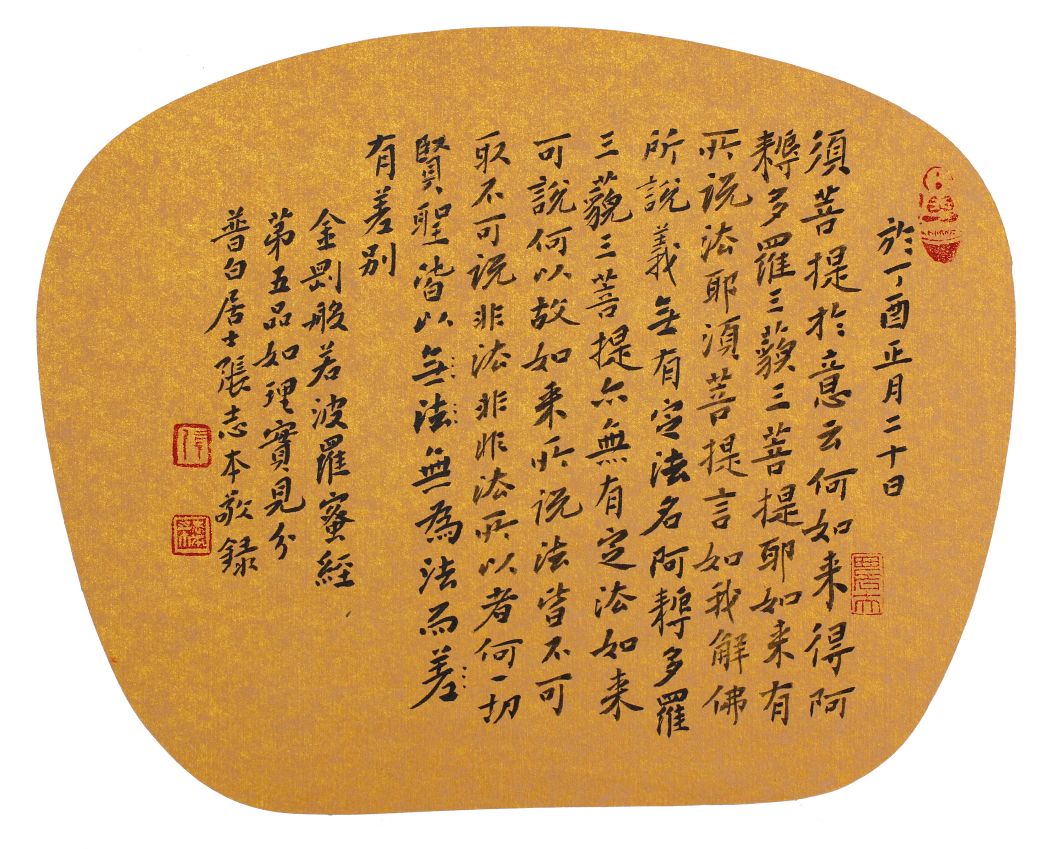 於丁酉正月二十日
須菩提於意云何如来得阿
耨多羅三藐三菩提耶如来有
所说法耶須菩提言如我解佛
所說義無有定法名阿耨多羅
三藐三菩提亦無有定法如来
可說何以故如来所说法皆不可
取不可说非法非非法所以者何一切
賢聖皆以無法無為法而差
有差别
金剛般若波羅蜜經
第五品如理實見分
普白居士張志本敬録